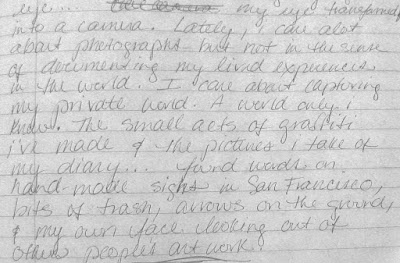 eye... my eye transformed
into a camera. Lately, i care alot
about photographs but not in the sense
of documenting my lived experiences
in the world. I care about capturing
my private world. A world only i
know. The small acts of graffiti
i've made & the pictures i take of
my diary... found words on
hand-made signs in San Francisco,
bits of trash, arrows on the ground,
& my own face looking out of
other people's art work.